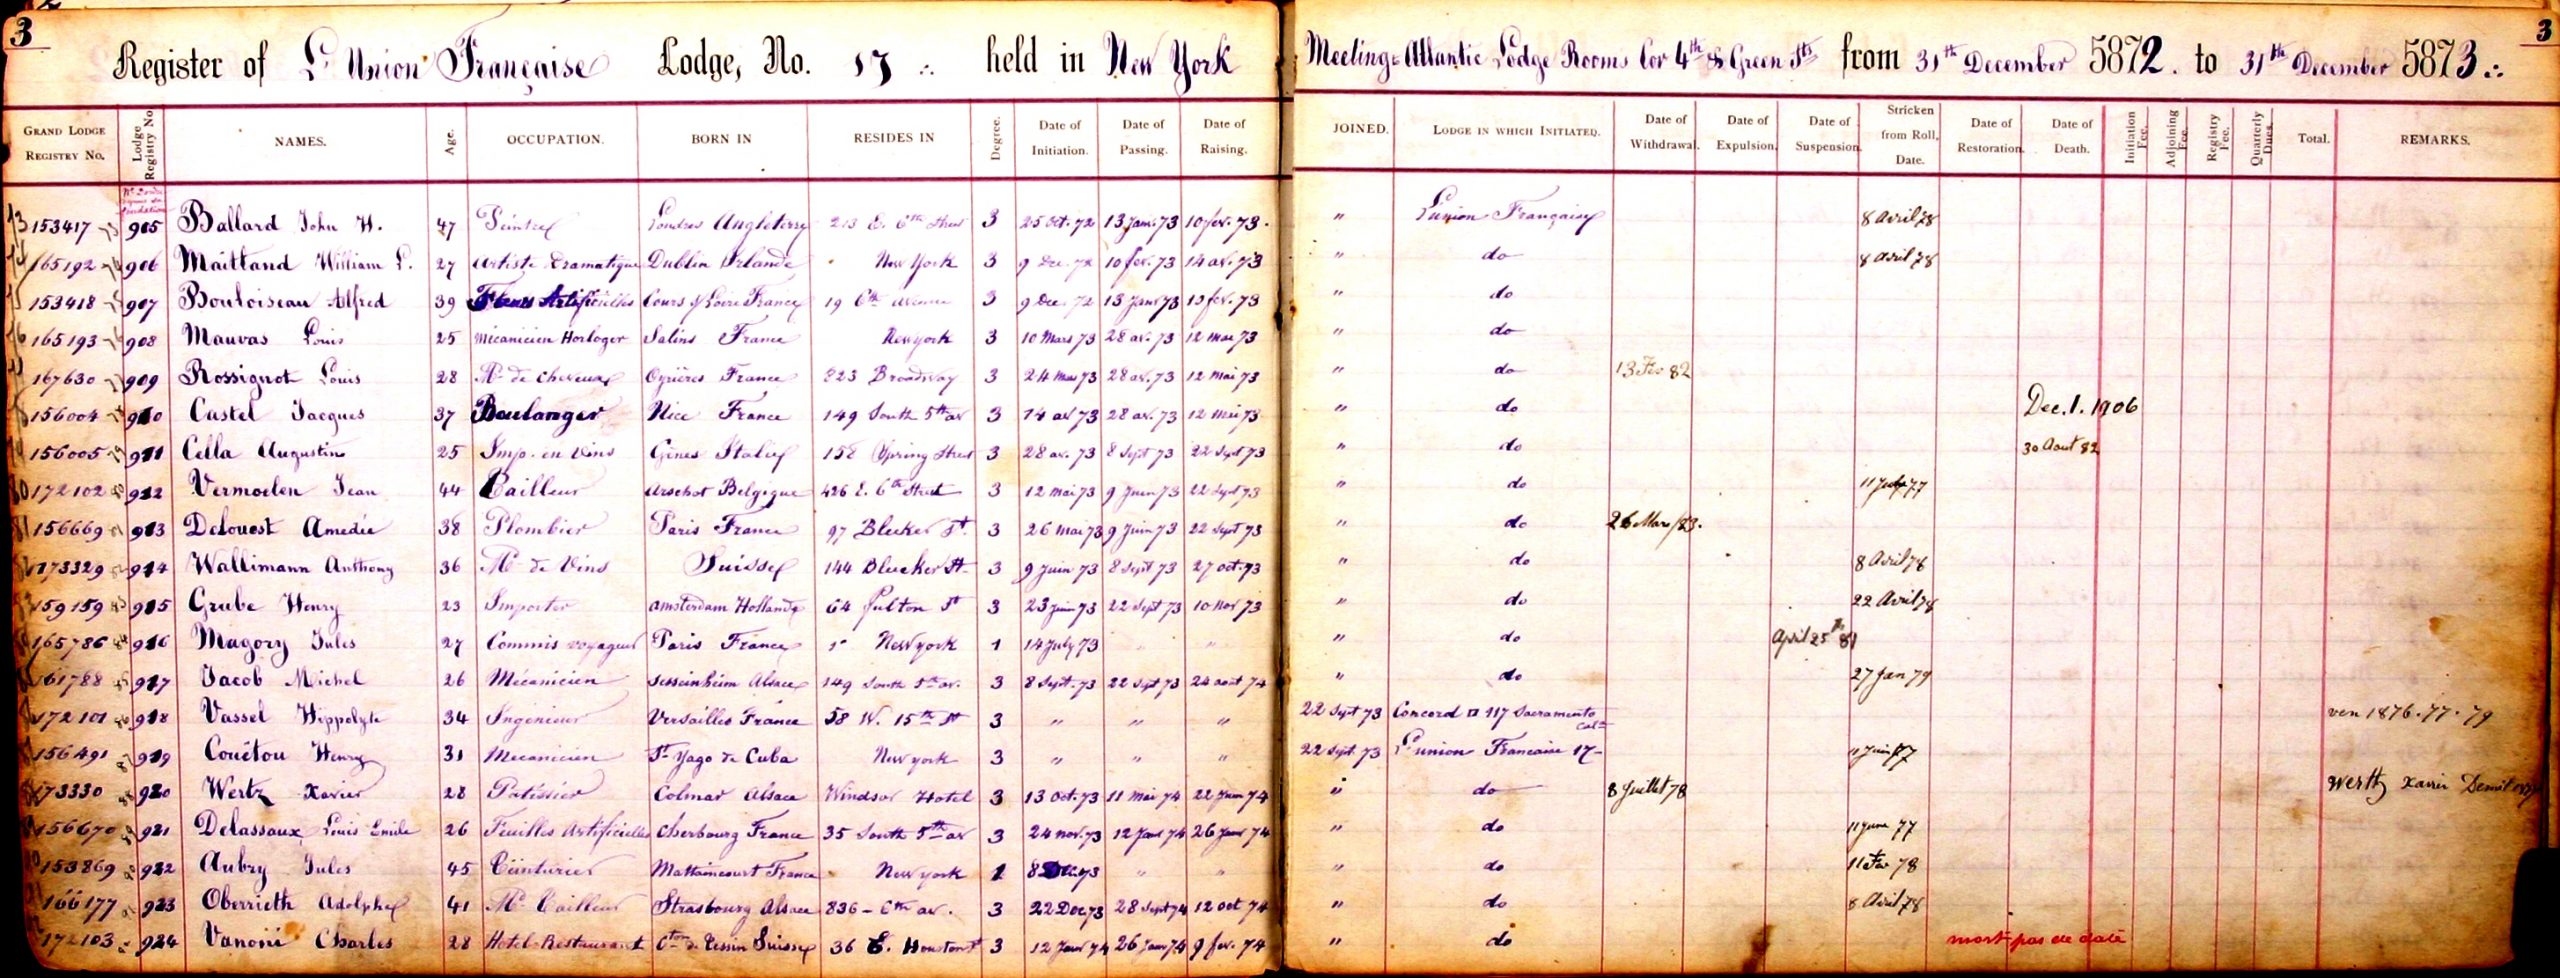 3
Register of L'Union Française Lodge, No. 17 ∴ held in New York Meeting= Atlantic Lodge Rooms Cor 4th & Green Sts from 31th December 5872. to 31th December 5873 ∴
3
GRAND LODGE REGISTRY NO. Lodge Registry No NAMES. Age. OCCUPATION. BORN IN RESIDES IN Degree. Date of Initiation. Date of Passing. Date of Raising. JOINED. LODGE IN WHICH INITIATED. Date of Withdrawal. Date of Expulsion. Date of Suspension. Stricken from Roll, Date. Date of Restoration. Date of Death. Initiation Fee. Adjoining Fee. Registry Fee. Quarterly Dues. Total. REMARKS.
153417 905 Ballard John H. 47 Peintre Londres Angleterre 213 E. 6th Street 3 25 Oct. 72 13 Janv. 73 10 fev. 73. " L'union Française 8 Avril 78
165192 906 Maitland William L. 27 Artiste Dramatique Dublin Irlande New York 3 9 Dec. 72 10 fev. 73 14 av. 73 " do 8 Avril 78
153418 907 Bouloiseau Alfred 39 Fleurs Artificielles Cours s/ Loire France 19 6th Avenue 3 9 Dec. 72 13 Janv 73 10 fev. 73 " do
165193 908 Mauvas Louis 25 Mécanicien Horloger Salins France New york 3 10 Mars 73 28 av. 73 12 mai 73 " do
167630 909 Rossignot Louis 28 Md de Cheveux France 823 Broadway 3 24 Mars 73 28 av. 73 12 mai 73 " do 13 Fev 82
156004 910 Castel Jacques 37 Boulanger Nice France 149 South 5th av 3 14 av 73 28 av. 73 12 mai 73 " do Dec. 1. 1906
156005 911 Cella Augustin 25 Imp. en Vins Gênes Italie 158 Spring Street 3 28 av. 73 8 Sept 73 22 Sept 73 " do 30 Aout 82
172102 912 Vermoelen Jean 44 Tailleur Arschot Belgique 426 E. 6th Street 3 12 mai 73 9 Juin 73 22 Sept 73 " do 11 77
156669 913 Delouest Amedée 38 Plombier Paris France 97 Bleeker St. 3 26 Mai 73 9 Juin 73 22 Sept 73 " do 26 Mars/83.
173329 914 Wallimann Anthony 36 Md de Vins Suisse 144 Bleeker St. 3 9 Juin 73 8 Sept 73 27 oct. 73 " do 8 Avril 78
159159 915 Grube Henry 23 Importer Amsterdam Hollande 64 Fulton St 3 23 juin 73 22 Sept 73 10 Nov 73 " do 22 Avril 78
165786 916 Magory Jules 27 Commis voyageur Paris France " New york 1 14 July 73 " " " do April 25th 81
161788 917 Jacob Michel 26 Mécanicien Sesseinheim Alsace 149 South 5th av. 3 8 Sept. 73 22 Sept 73 24 aout 74 " do 27 Jan 79
172101 918 Vassel Hippolyte 34 Ingénieur Versailles France 58 W. 15th St 3 " " " 22 Sept 73 Concord 117 Sacramento Cal= ven 1876. 77. 79
156491 919 Couëtou Henry 31 Mecanicien St Yago de Cuba New york 3 " " " 22 Sept. 73 L'union Francaise 17- 11 Juin 77
173330 920 Wertz Xavier 28 Patissier Colmar Alsace Windsor Hotel 3 13 Oct. 73 11 Mai 74 22 Juin 74 " do 8 Juillet 78 Werttz Xavier
156670 921 Delassaux Louis Emile 26 Feuilles Artificielles Cherbourg France 35 South 5th av 3 24 nov. 73 12 Janv 74 26 Janv 74 " do 11 June 77
153869 922 Aubry Jules 45 Teinturier Mattaincourt France New york 1 8 Dec. 73 " " " do 11 Fev 78
166177 923 Oberrieth Adolphe 41 Md Tailleur Strasbourg Alsace 836 - 6th av. 3 22 Dec 73 28 Sept 74 12 oct 74 " do 8 Avril 78
172103 924 Vanoni Charles 28 Hotel-Restaurant Cton de Tessin Suisse 36 E. Houston St 3 12 Janv 74 26 Janv 74 9 fev. 74 " do mort pas de date